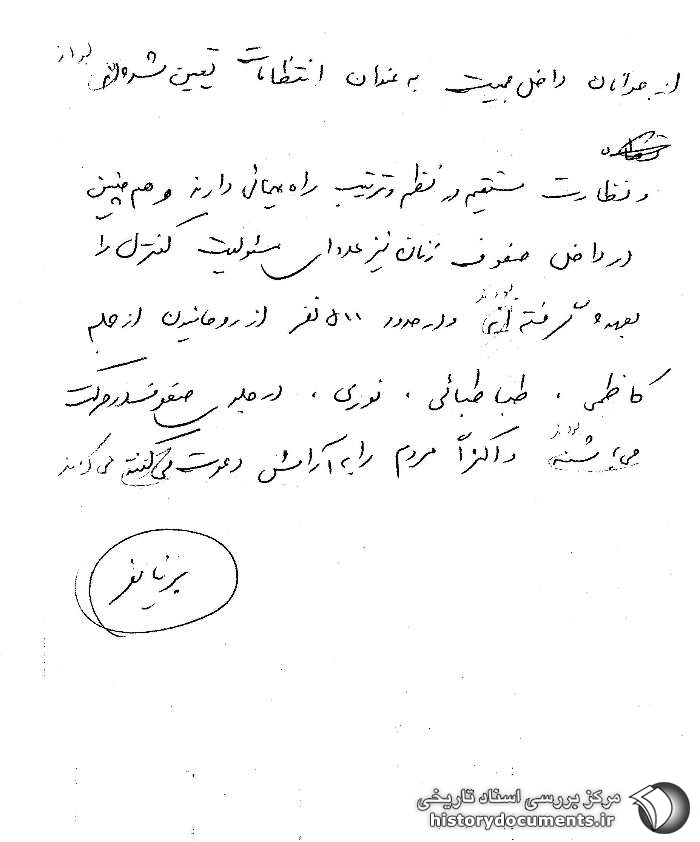 از جوانان داخل جمعیت به عنوان انتظامات تعیین شده
و نظارت مستقیم در نظم و ترتیب راه پیمائی دارند و هم چنین
در داخل صفوف زنان نیز عده ای مسئولیت کنترل را
بعهده گرفته اند بودند و در حدود ۵۰۰ نفر از روحانیون از جمله
کاظمی ، طباطبائی ، نوری ، در جلوی صفوف در حرکت
می باشند بودند و اکثراً مردم را به آرامش دعوت می کنند می کردند
مرکز بررسی اسناد تاریخی
historydocuments.ir